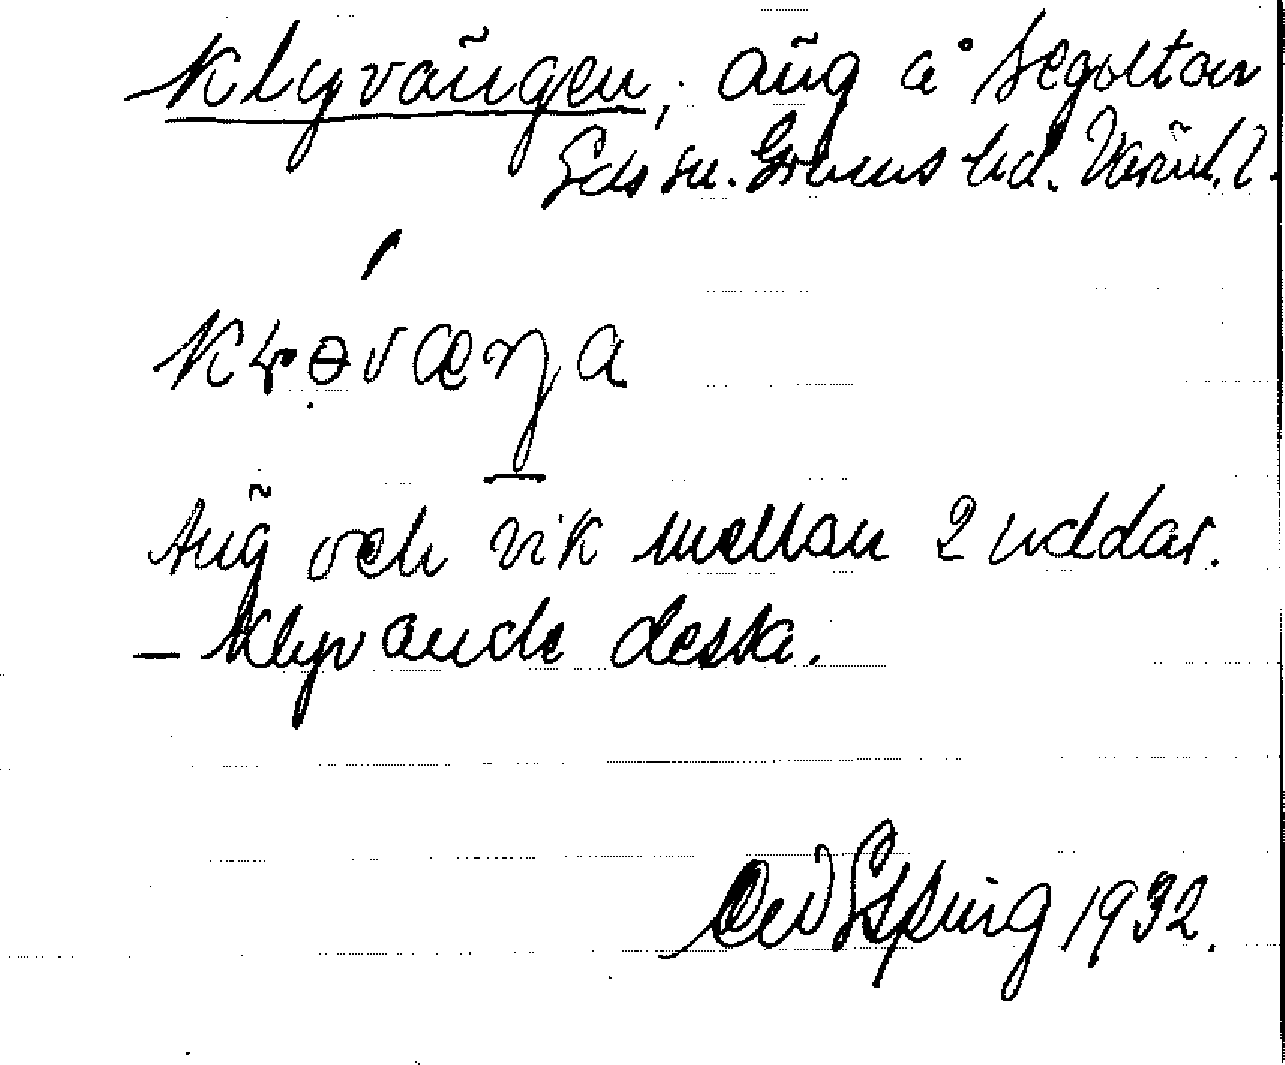 Klyvängen, äng å Segoltan
Eds sn. Grums hd. Värml. l.
kɽɵvæŋa
Äng och vik mellan 2 uddar.
– Klyvande dessa.
Esping 1932.